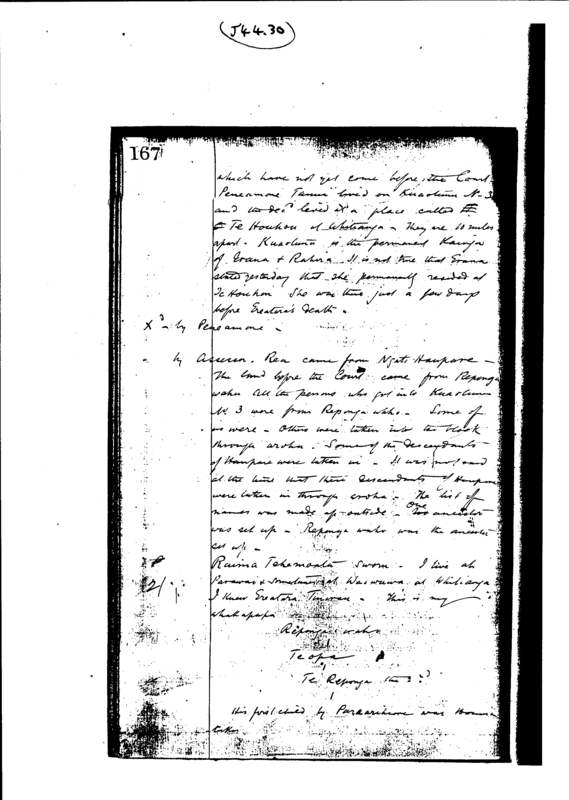 (J44.30)
167
which have not yet come before the Court
Peneamone Tanui lived on Kuaotunu No 3
and the decd lived at a place called
Te Houhou at Whitianga – They are 10 miles
apart. Kuaotunu is the permanent Kainga
of Erana & Rahira It is not true that Erana
stated yesterday that she permanently resided at
Te Houhou She was there just a few days
before Ereatara's death.
Xd by Peneamone –
" by Assessor. Rea came from Ngati Haupare –
The land before the Court came from Reponga
waho All the persons who got into Kuaotunu
No. 3 were from Reponga waho – Some of
us were – Others were taken into the block
through aroha. Some of the descendants
of Haupare were taken in – It was not said
at the time that these descendants of Haupare
were taken in through aroha – The list of
names was made up outside – One ancestor
was set up – Reponga waho was the ancestor
set up –
2/
Raima sworn – I live at
Parawai & sometimes at at Whitianga
I knew Ereatara – This is my
whakapapa
Reponga waho
Teopa
Te Reponga the 2d
His first child by was